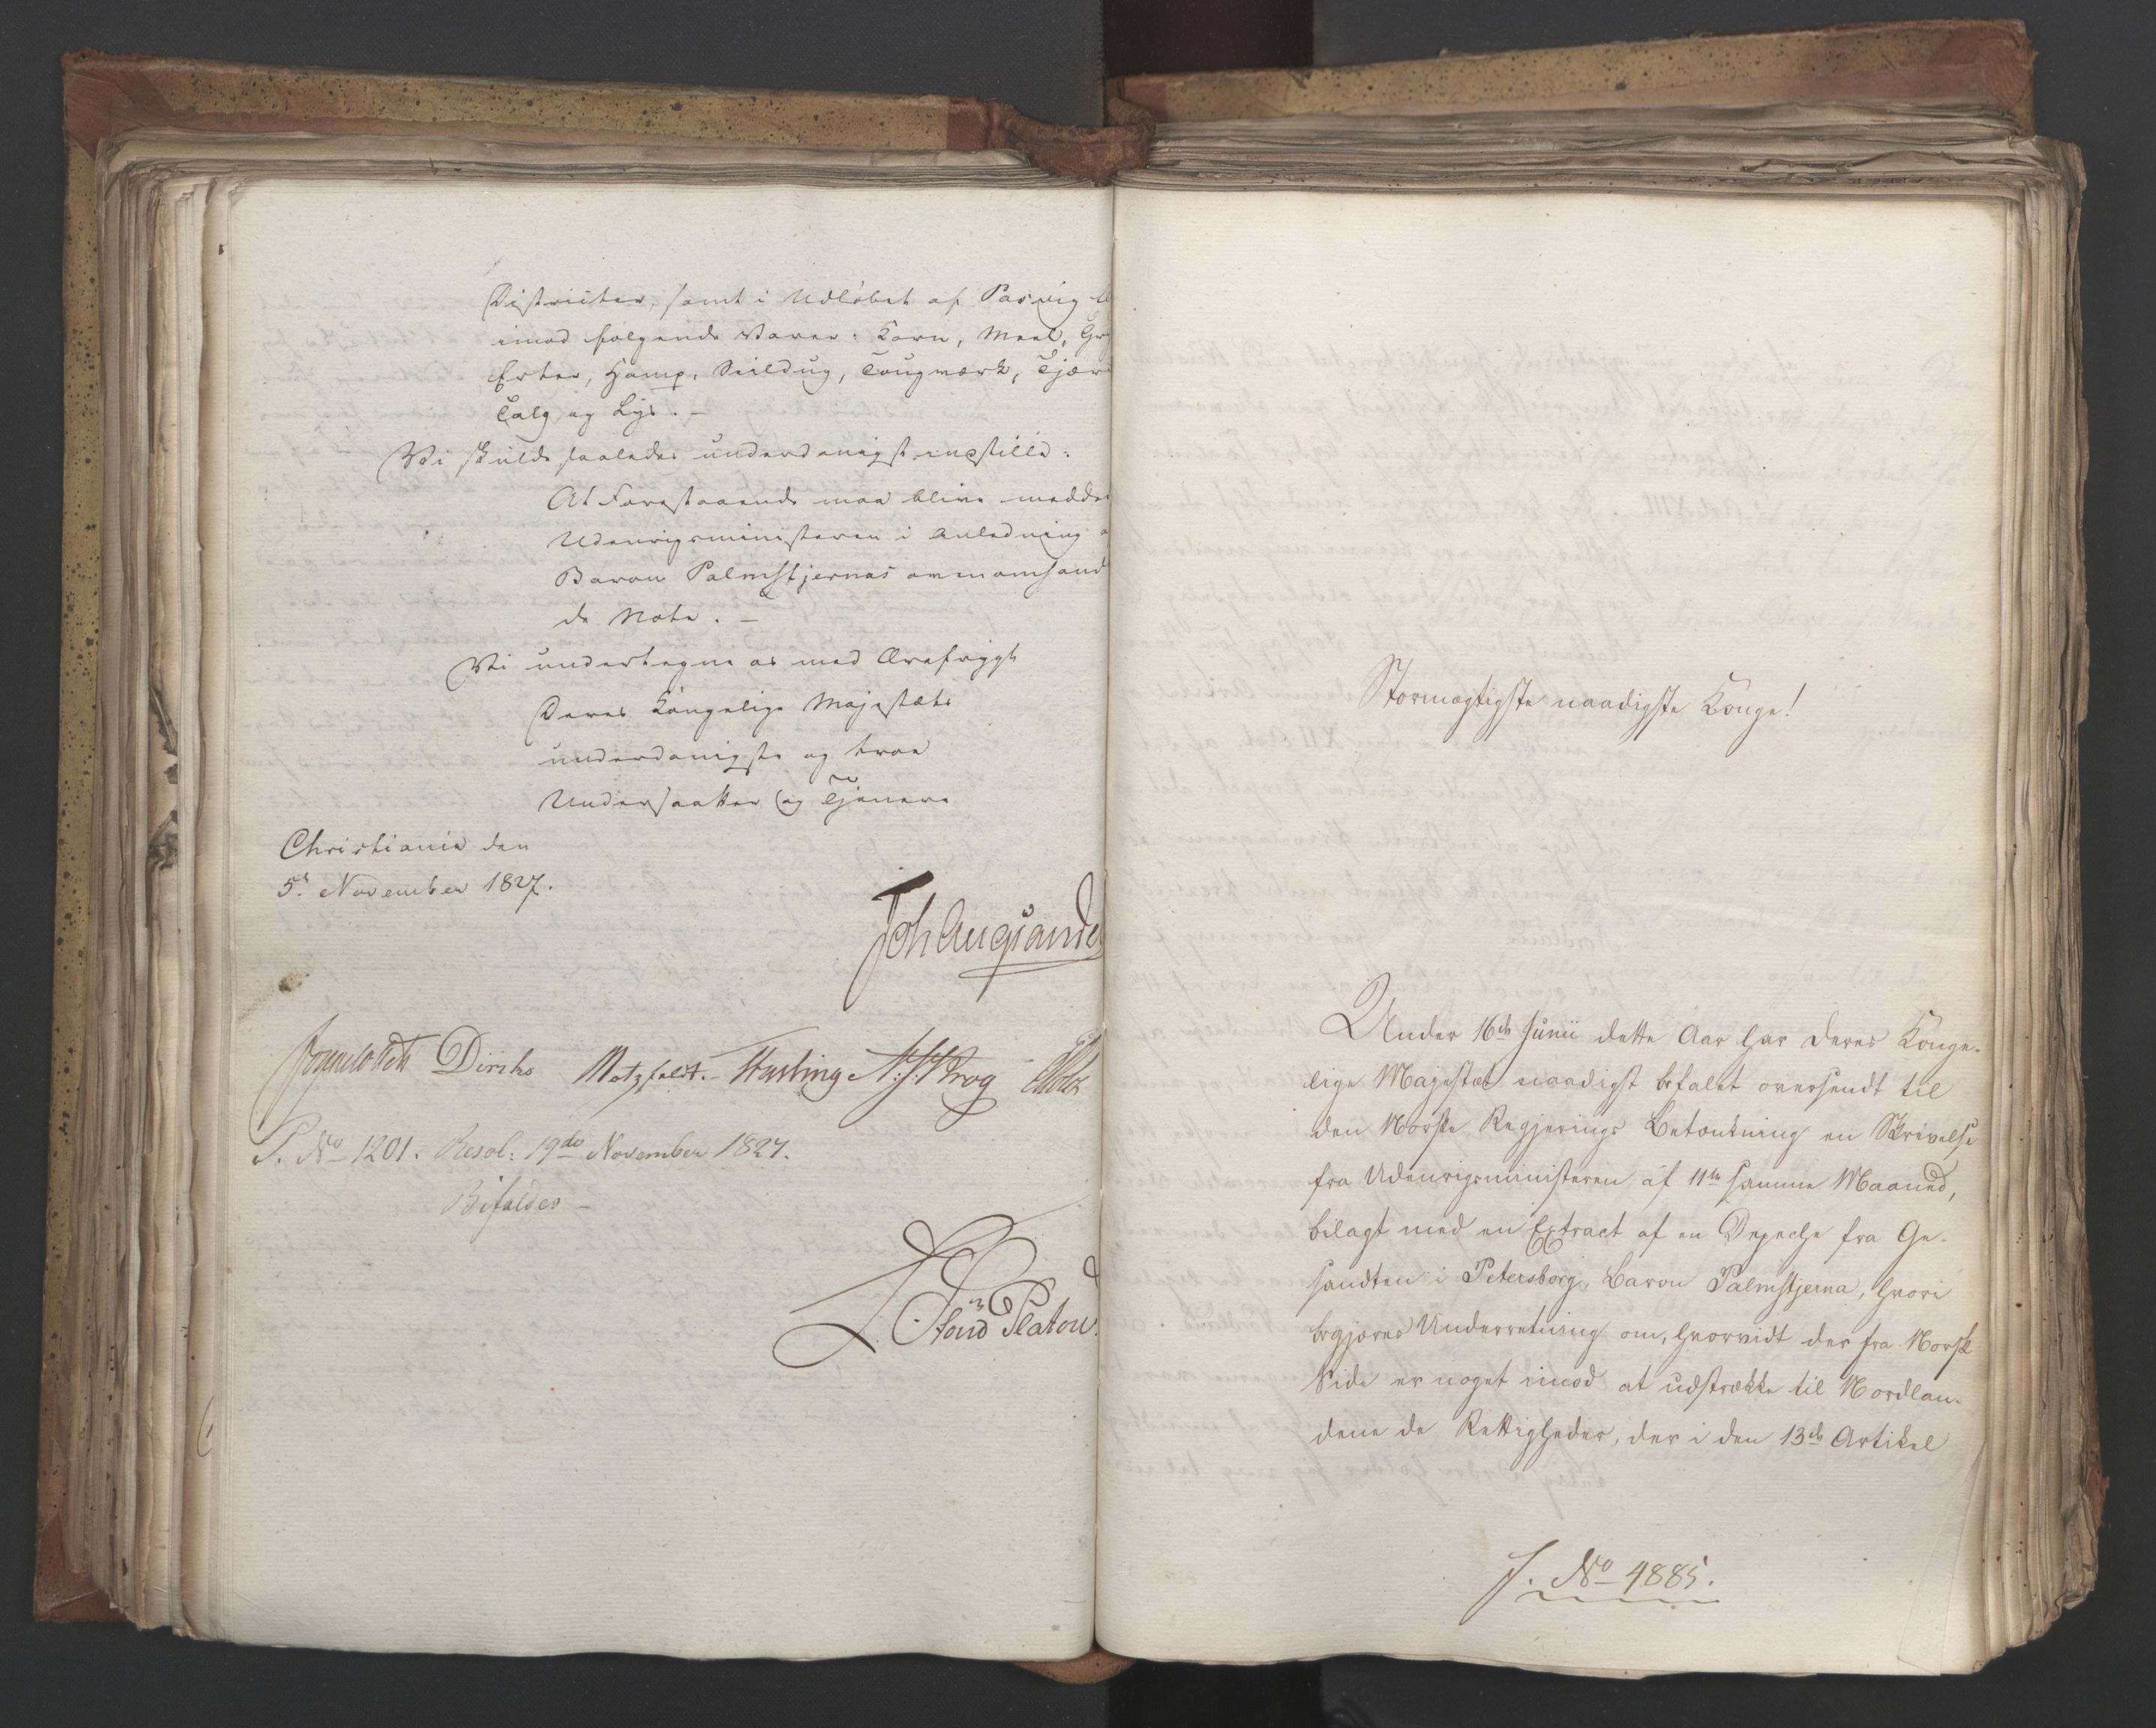 Districter, samt i Udløbet af Pasvig
imod følgende Varer: Korn, Meel, Gry
Erter, Hamp, Seildug, Tougværk, Tjær
Talg og Lys. –
Vi skulde saaledes underdanigst indstille:
At Forestaaende maa blive meddel
Udenrigsministeren i Anledning a
Baron Palmstjernas ommomhand
de Note. –
Vi undertegne os med Ærefrygt
Deres Kongelige Majestæts
underdanigste og troe
Undersaatter og Tjenere
Christiania den
5te November 1827.
Joh Aug Sande
Sommerfeldt Diriks Motzfeldt. Fasting N. J. Krog
P. No 1201. Resol: 19de November 1827.
Bifaldes –
Stoud Platou.
Stormægtigste naadigste Konge!
Under 16de Junii dette Aar har Deres Konge-
lige Majestæt naadigst befalet oversendt til
den Norske Regjerings Betænkning en Skrivelse
fra Udenrigsministeren af 11te samme Maaned,
bilagt med en Extract af en Depeche fra Ge-
sandten i Petersborg, Baron Palmstjerna, hvori
begjæres Underretning om, hvorvidt der fra Norsk
Side er noget imod at udstrække til Nordlan-
dene de Rettigheder, der i den 13de Artikel
J. No 4885.